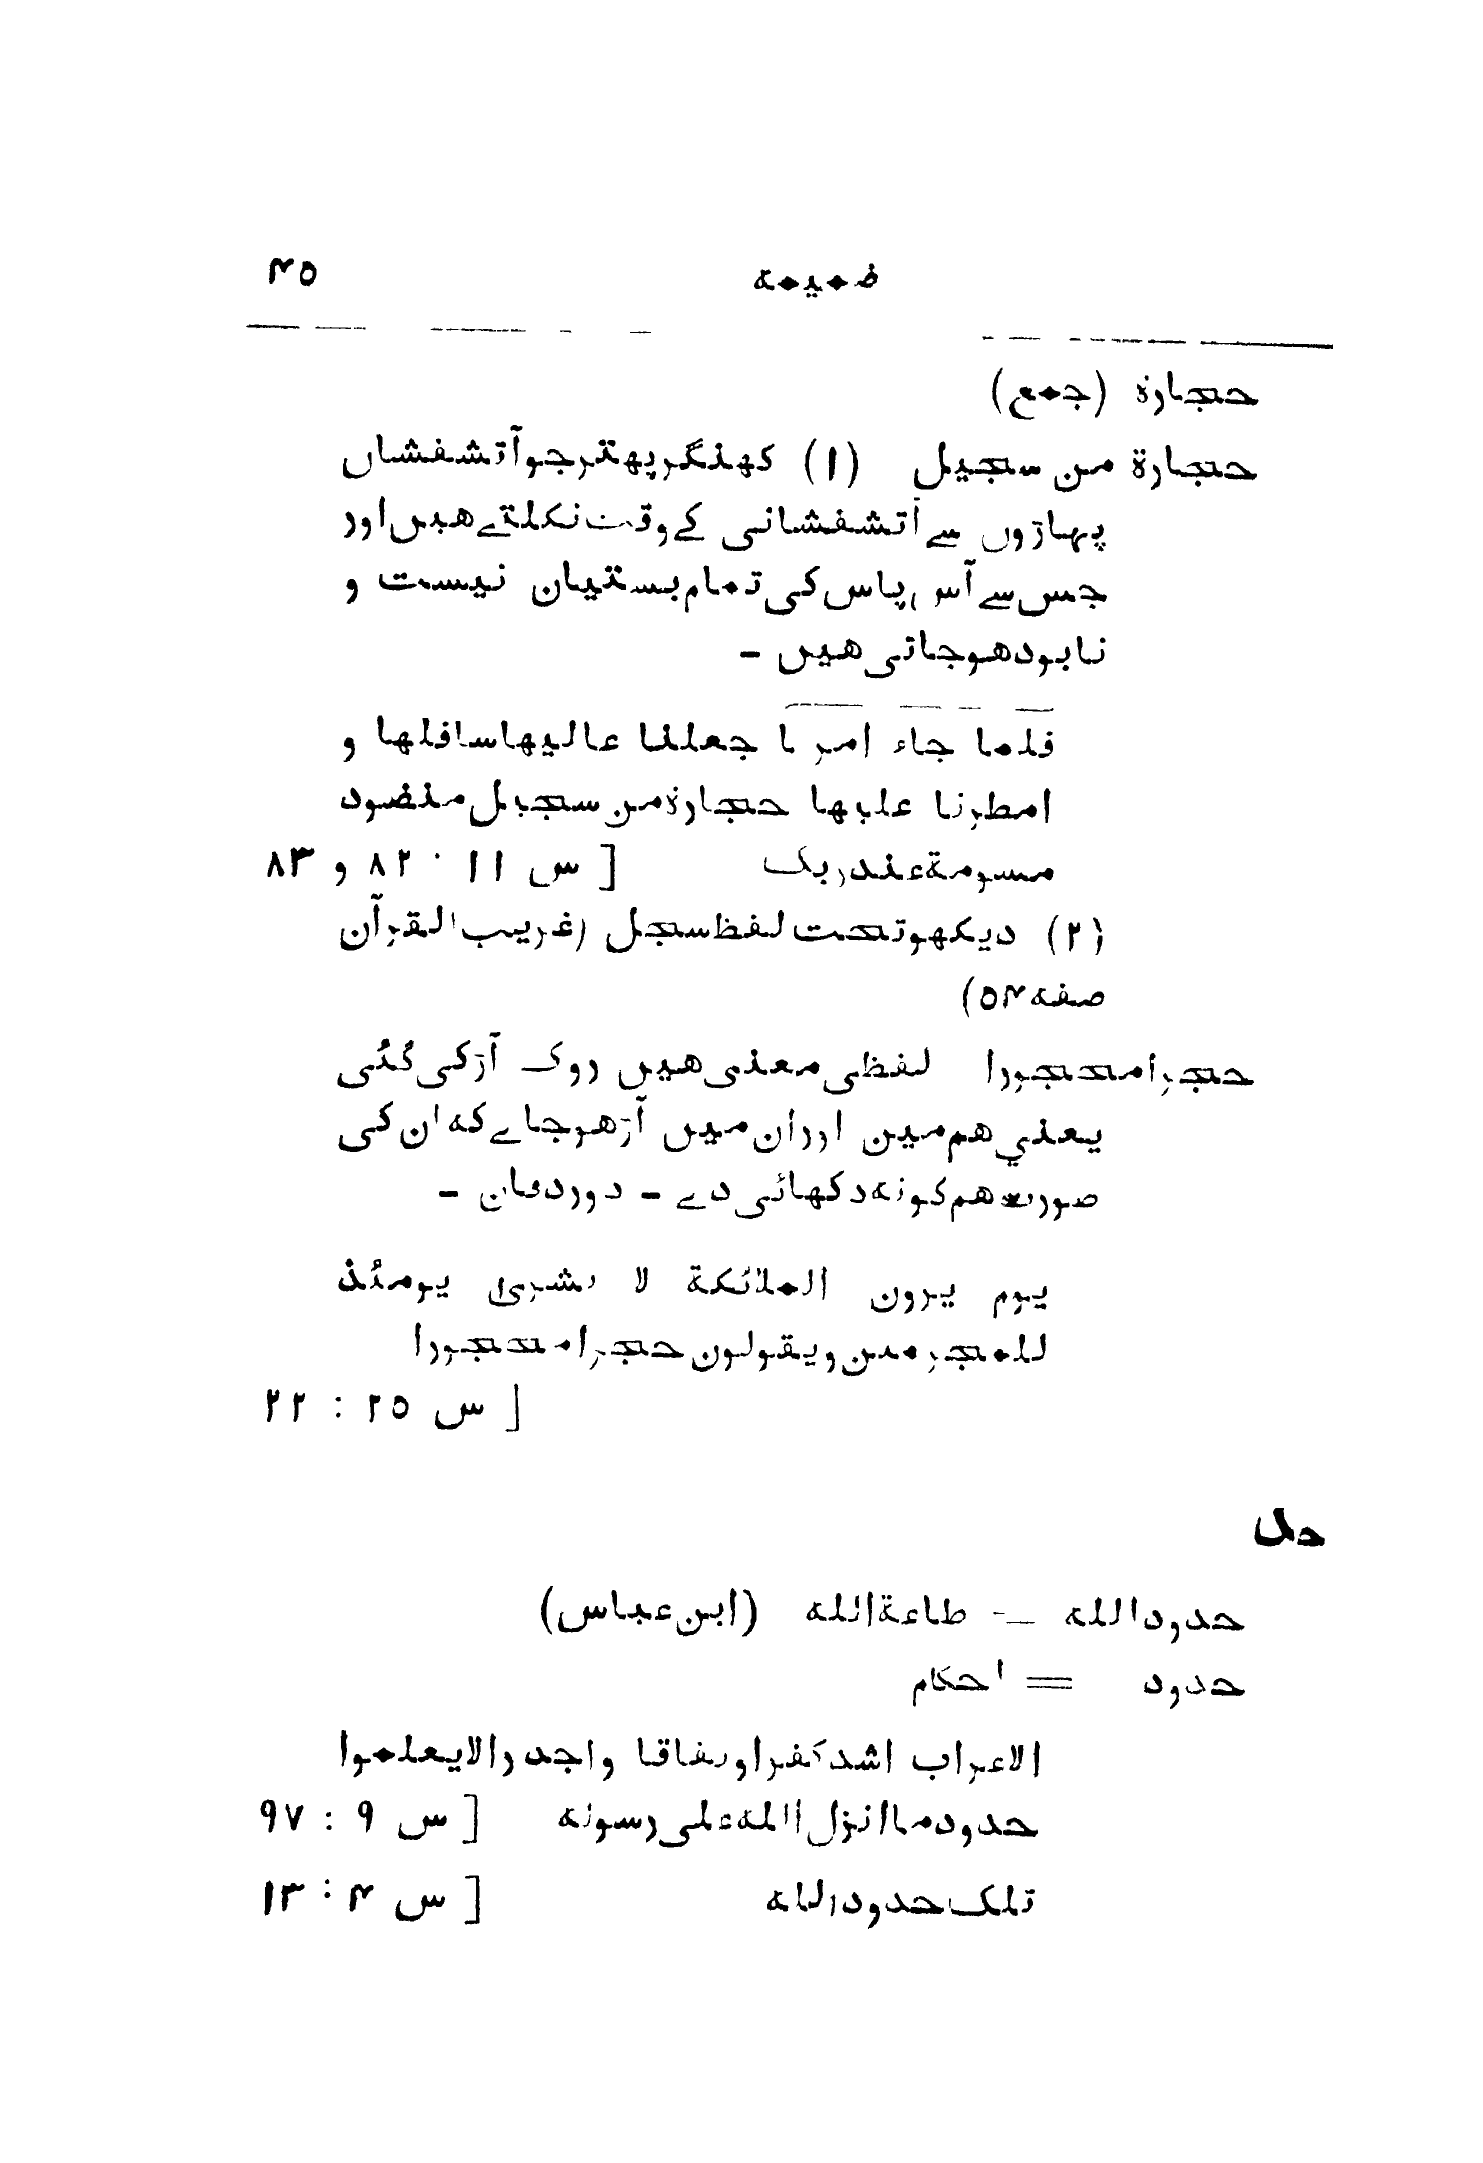 ضمیمه ۴۵
حجارة (جمع)
حجارة من سجیل (۱) کهنگر پهتر جو آتشفشاں
پہاڑوں سے آتشفشانی کے وقت نکلتے هیں اور
جس سے آس پاس کی تمام بستیان نیست و
نابود هوجاتی هیں -
فلما جاء امرنا جعلنا عالیها سافلها و
امطرنا علیها حجارة من سجیل منضود
مسومة عند ربک [ س ۱۱ : ۸۲ و ۸۳
(۲) دیکهو تحت لفظ سجل (غریب القرآن
صفه ۵۴)
حجرا محجورا لفظی معنی هیں روک آڑ کی گئی
یعنی هم مین اور اُن میں آڑ هوجاے که ان کی
صورت هم کو نه دکهائی دے - دور دفان -
یوم یرون الملائکة لا بشری یومئذ
للمجرمین و یقولون حجرا محجورا
[ س ۲۵ : ۲۲
حد
حدود الله = طاعة الله (ابن عباس)
حدود = احکام
الاعراب اشد کفرا و نفاقا و اجدر الا یعلموا
حدود ما انزل الله علی رسوله [ س ۹ : ۹۷
تلک حدود الله [ س ۴ : ۱۳